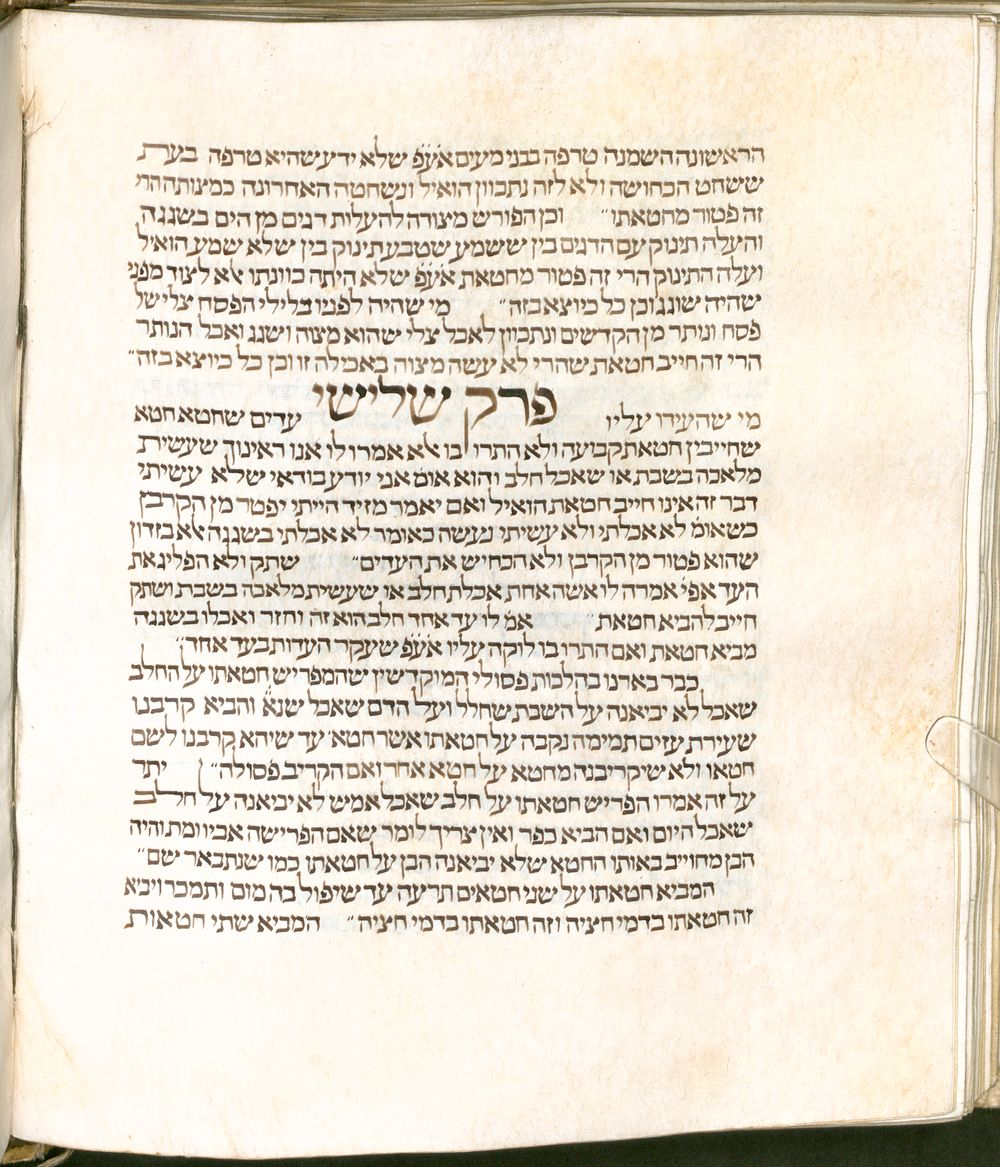 הראשונה השמנה טרפה בבני מעים אע̇פ̇ שלא ידע שהיא טרפה בעת
ששחט הכחושה ולא לזה נתכוון הואיל ונשחטה האחרונה כמצותה הרי
זה פטור מחטאתו״ וכן הפורש מצודה להעלות דגים מן הים בשגגה
והעלה תינוק עם הדגים בין ששמע שטבע תינוק בין שלא שמע הואיל
ועלה התינוק הרי זה פטור מחטאת אע̇פ̇ שלא היתה כוונתו אלא לצוד מפני
שהיה שוגג וכן כל כיוצא בזה״ מי שהיה לפניו בלילי הפסח צלי של
פסח ונותר מן הקדשים ונתכוון לאכל צלי שהוא מצוה ושגג ואכל הנותר
הרי זה חייב חטאת שהרי לא עשה מצוה באכילה זו וכן כל כיוצא בזה״
פרק שלישי
מי שהעידו עליו עדים שחטא חטא
שחייבין חטאת קבועה ולא התרו בו אלא אמרו לו אנו ראינוך שעשית
מלאכה בשבת או שאכל חלב והוא אומ̇ אני יודע בודאי שלא עשיתי
דבר זה אינו חייב חטאת הואיל ואם יאמר מזיד הייתי יפטר מן הקרבן
כשאומ̇ לא אכלתי ולא עשיתי נעשה כאומר לא אכלתי בשגגה אלא בזדון
שהוא פטור מן הקרבן ולא הכחיש את העדים״ שתק ולא הפליג את
העד אפי̇ אמרה לו אשה אחת אכלת חלב או שעשית מלאכה בשבת ושתק
חייב להביא חטאת״ אמ̇ לו עד אחד חלב הוא זה וחזר ואכלו בשגגה
מביא חטאת ואם התרו בו לוקה עליו אע̇פ̇ שעקר העדות בעד אחד״
כבר בארנו בהלכות פסולי המוקדשין שהמפריש חטאתו על החלב
שאכל לא יביאנה על השבת שחלל ועל הדם שאכל שנא̇ והביא קרבנו
שעירת עזים תמימה נקבה על חטאתו אשר חטא עד שיהא קרבנו לשם
חטאו ולא שיקריבנה מחטא על חטא אחר ואם הקריב פסולה״ יתר
על זה אמרו הפריש חטאתו על חלב שאכל אמש לא יביאנה על חלב
שאכל היום ואם הביא כפר ואין צריך לומר שאם הפרישה אביו ומת והיה
הבן מחוייב באותו החטא שלא יביאנה הבן על חטאתו כמו שנתבאר שם״
המביא חטאתו על שני חטאים תרעה עד שיפול בה מום ותמכר ויביא
זה חטאתו בדמי חציה וזה חטאתו בדמי חציה״ המביא שתי חטאות